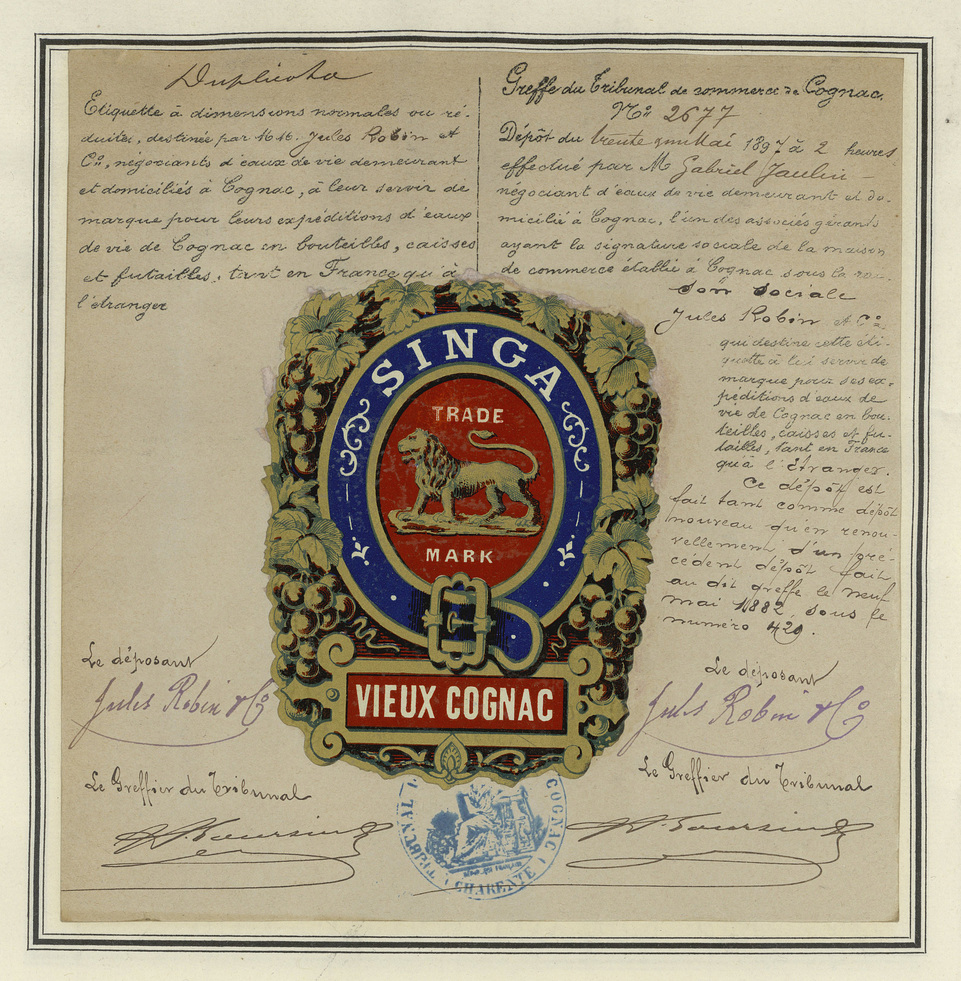 Duplicata
Etiquette à dimensions normales ou ré-
duites, destinée par MM. Jules Robin et
Cie, négociants d'eaux de vie demeurant
et domiciliés à Cognac, à leur servir de
marque pour leurs expéditions d'eaux
de vie de Cognac en bouteilles, caisses
et futailles, tant en France qu'à
l'étranger
Greffe du Tribunal de commerce de Cognac.
No 2677
Dépôt du trente un Mai 1897 à 2 heures
effectué par M Gabriel
négociant d'eaux de vie demeurant et do-
micilié à Cognac, l'un des associés gérants
ayant la signature sociale de la maison
de commerce établie à Cognac sous la rai-
son sociale
Jules Robin et Cie
qui destine cette éti-
quette à lui servir de
marque pour ses ex-
péditions d'eaux de
vie de Cognac en bou-
teilles, caisses et fu-
tailles, tant en France
qu'à l'étranger.
Ce dépôt est
fait tant comme dépôt
nouveau qu'en renou-
vellement d'un pré-
cédent dépôt fait
au dit greffe le neuf
mai 1882, sous le
numéro 429.
SINGA
TRADE
MARK
VIEUX COGNAC
Le déposant
Jules Robin & Co
Le Greffier du Tribunal
Le déposant
Jules Robin & Co
Le Greffier du Tribunal
TRIBUNAL
COGNAC
(CHARENTE)